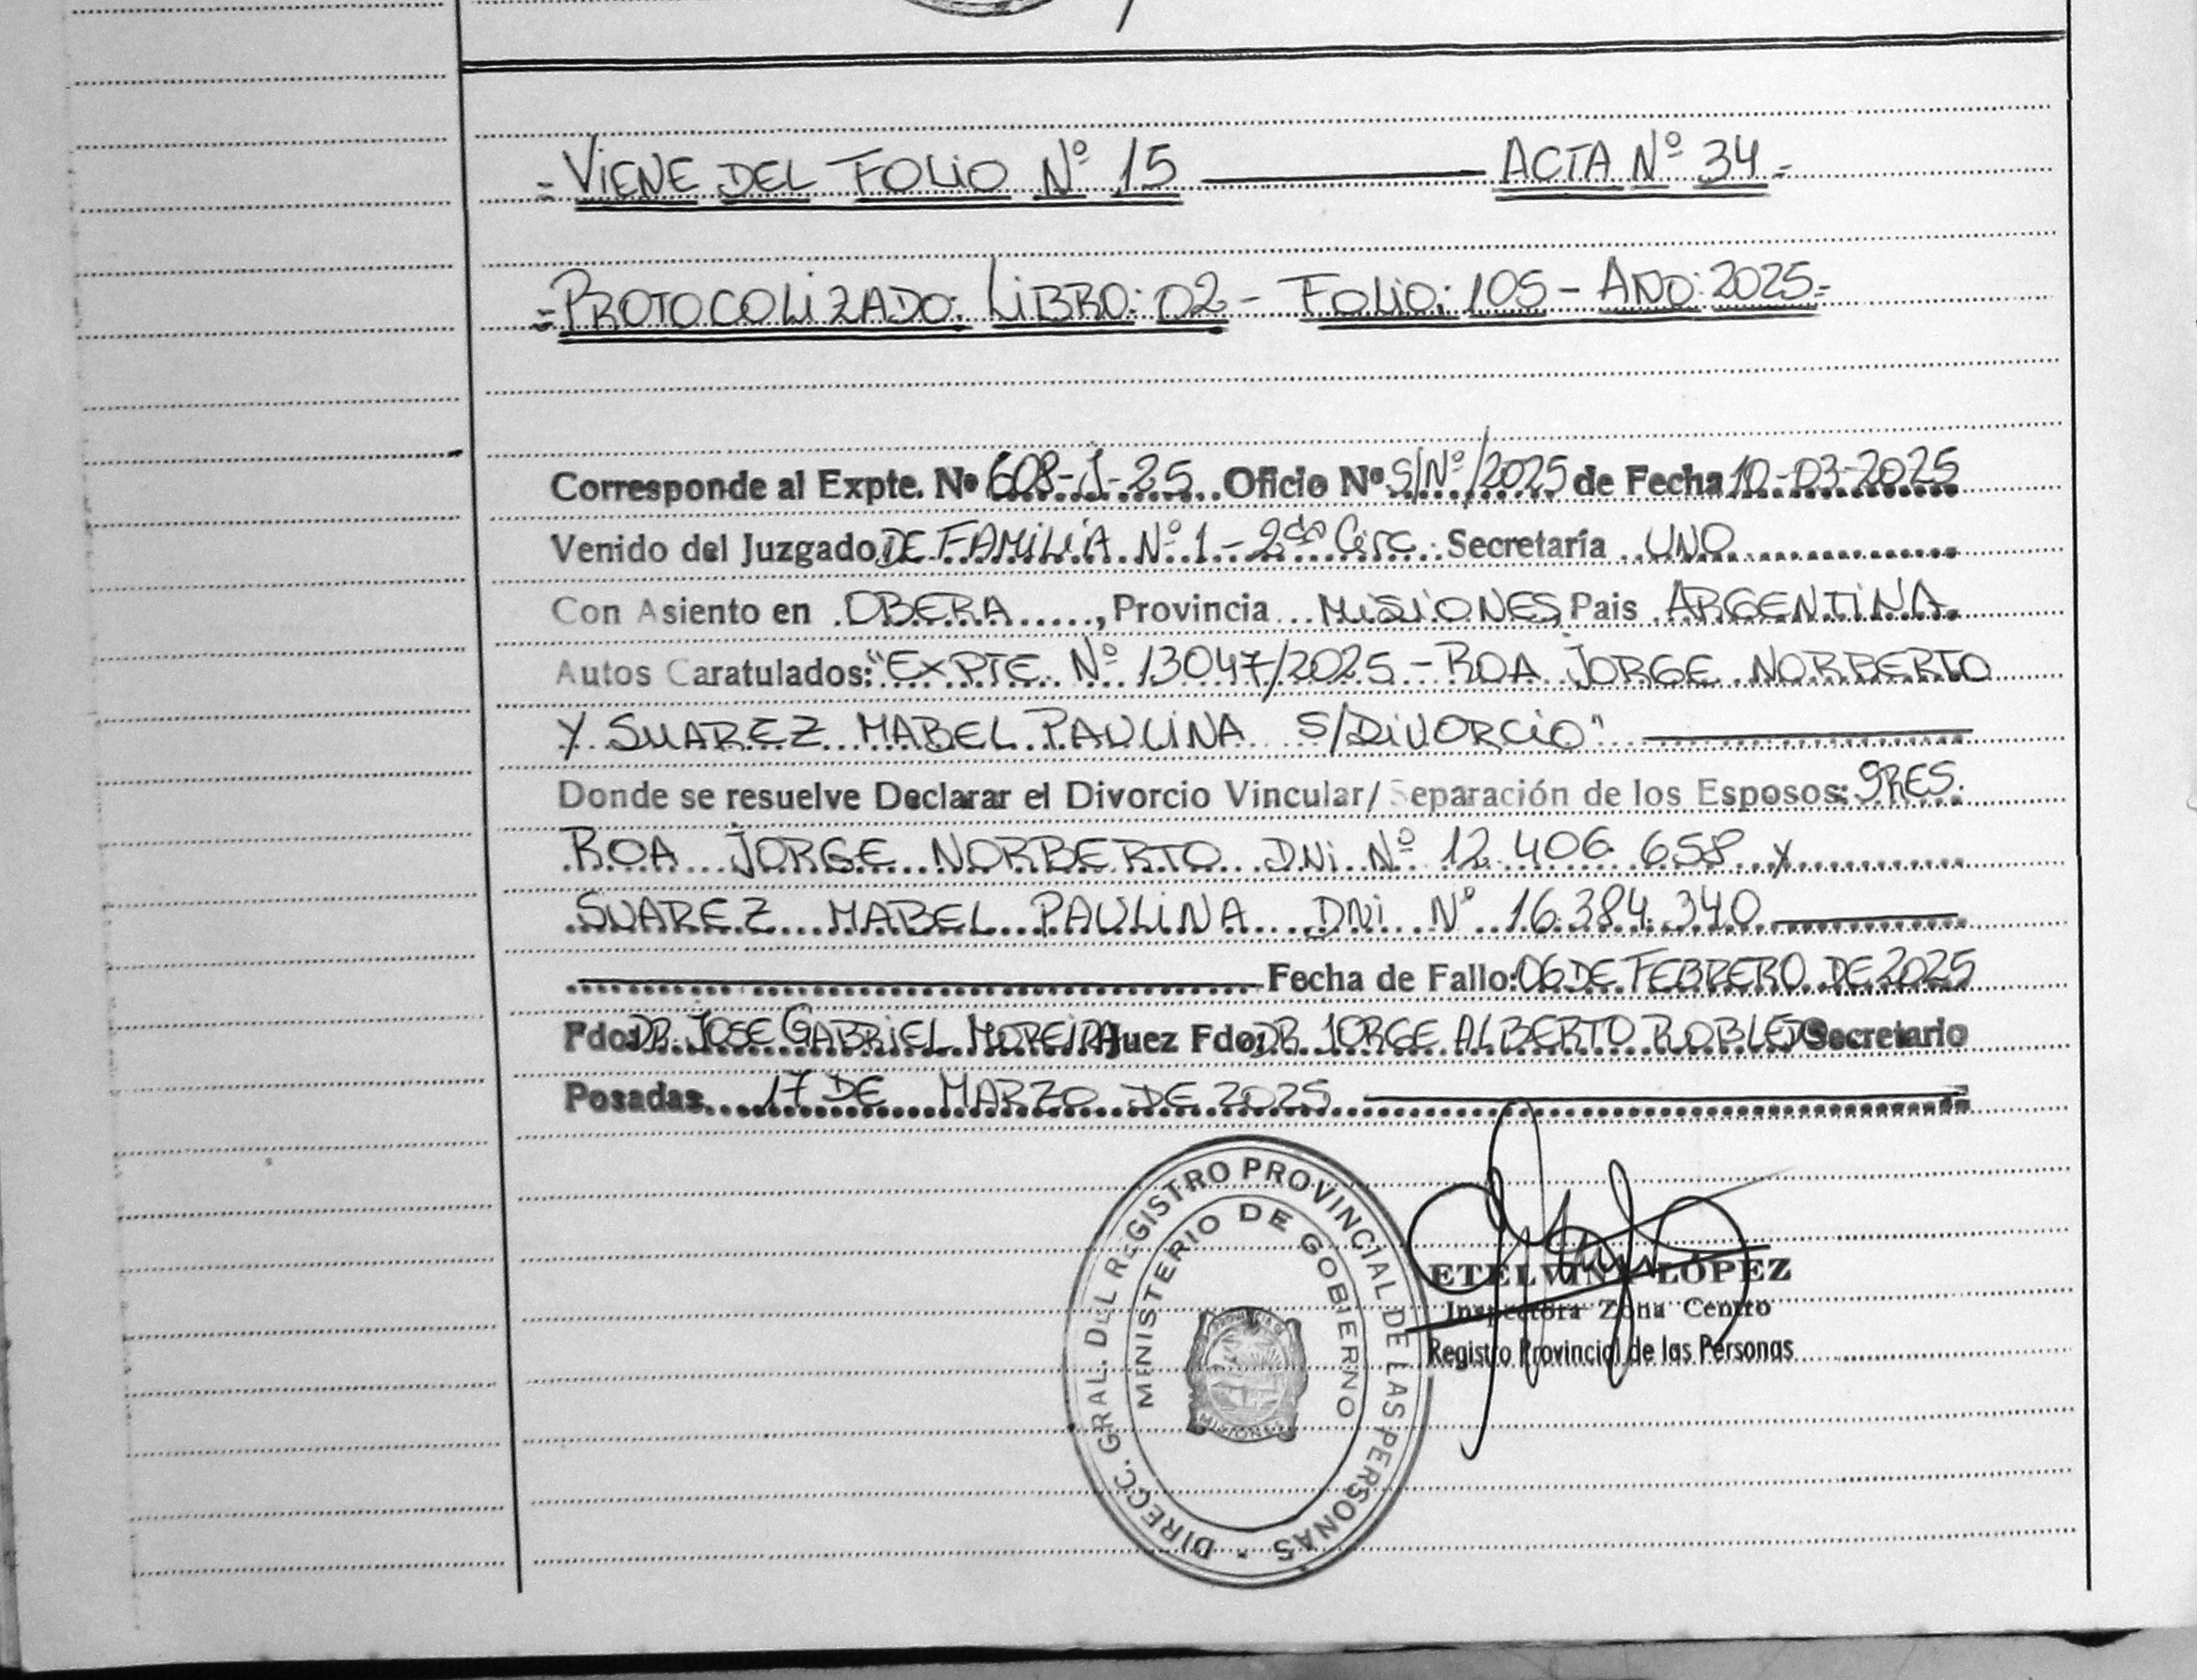 = VIENE DEL FOLIO Nº 15 ——— ACTA Nº 34.=
= PROTOCOLIZADO: LIBRO: 02 - FOLIO: 105 - AÑO: 2025.=
Corresponde al Expte. Nº 608-J-25 Oficio Nº S/Nº/2025 de Fecha 10-03-2025
Venido del Juzgado DE FAMILIA Nº 1 - 2da Circ. Secretaría UNO
Con Asiento en OBERA, Provincia MISIONES Pais ARGENTINA.
Autos Caratulados: "EXPTE. Nº 13047/2025 - ROA JORGE NORBERTO
Y SUAREZ MABEL PAULINA S/DIVORCIO"
Donde se resuelve Declarar el Divorcio Vincular/ Separación de los Esposos: SRES.
ROA JORGE NORBERTO DNI Nº 12.406.658 y
SUAREZ MABEL PAULINA DNI Nº 16.384.340
Fecha de Fallo: 06 DE FEBRERO DE 2025
Fdo: DR. JOSE GABRIEL MOREIRA Juez Fdo: DR. JORGE ALBERTO ROBLEDO Secretario
Posadas 17 DE MARZO DE 2025
DIRECC. GRAL. DEL REGISTRO PROVINCIAL DE LAS PERSONAS
MINISTERIO DE GOBIERNO
PROVINCIA DE
MISIONES
ETELVINA LOPEZ
Inspectora Zona Centro
Registro Provincial de las Personas